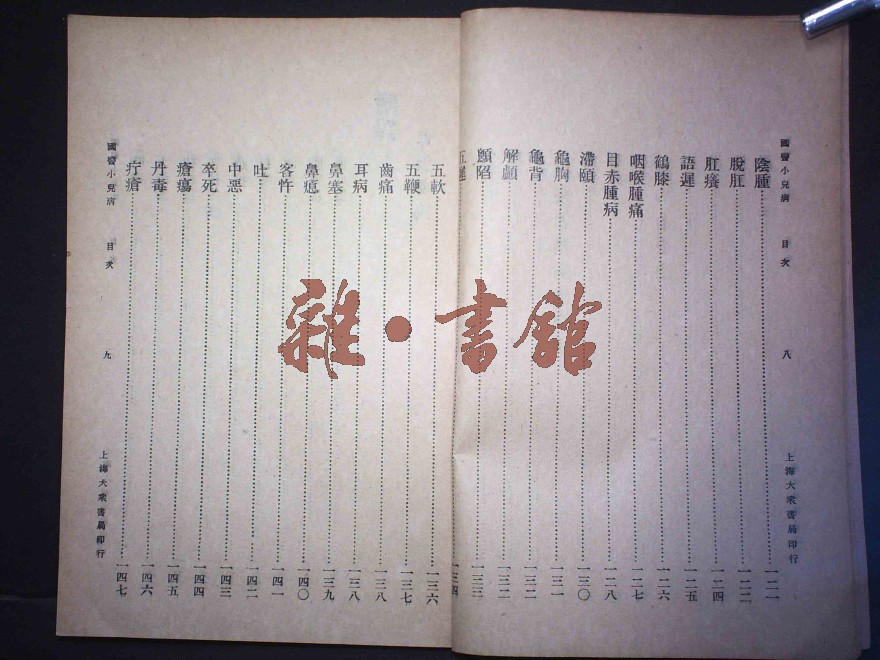 國醫小兒病 目次 八 上海大衆書局印行
陰腫⋯⋯一二一
脫肛⋯⋯一二二
肛癢⋯⋯一二四
語遲⋯⋯一二五
鶴膝⋯⋯一二六
咽喉腫痛⋯⋯一二七
目赤腫病⋯⋯一二八
滯頤⋯⋯一三〇
龜胸⋯⋯一三一
龜背⋯⋯一三二
解顱⋯⋯一三二
顖陷⋯⋯一三三
五遲⋯⋯一三四
五軟⋯⋯一三六
五鞕⋯⋯一三七
齒痛⋯⋯一三八
耳病⋯⋯一三八
鼻塞⋯⋯一三九
鼻瘜⋯⋯一四〇
客忤⋯⋯一四一
吐⋯⋯一四二
中惡⋯⋯一四三
卒死⋯⋯一四四
瘡瘍⋯⋯一四五
丹毒⋯⋯一四六
疔瘡⋯⋯一四七
國醫小兒病 目次 九 上海大衆書局印行
雜·書館